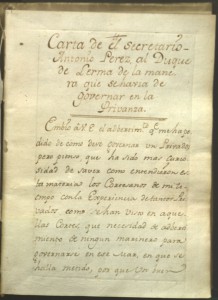 Carta de el secretario
Antonio Perez al Duque
de Lerma de la mane
ra que se havia de
governar en la
Privanza.
Embio à V.E. el advertimto. qe. me ha pe
dido de como deve governar un Privado
pero pienso que ha sido mas curio
sidad de saver como entendieron es
ta materia los Cortesanos de mi ti-
empo con la Experiencia de tantos Pri
vados como se han visto en aque
llas Cortes, que necesidad de adverti
miento de ningun marinero para
governarse en esta Mar, en que se
halla metido, por que son